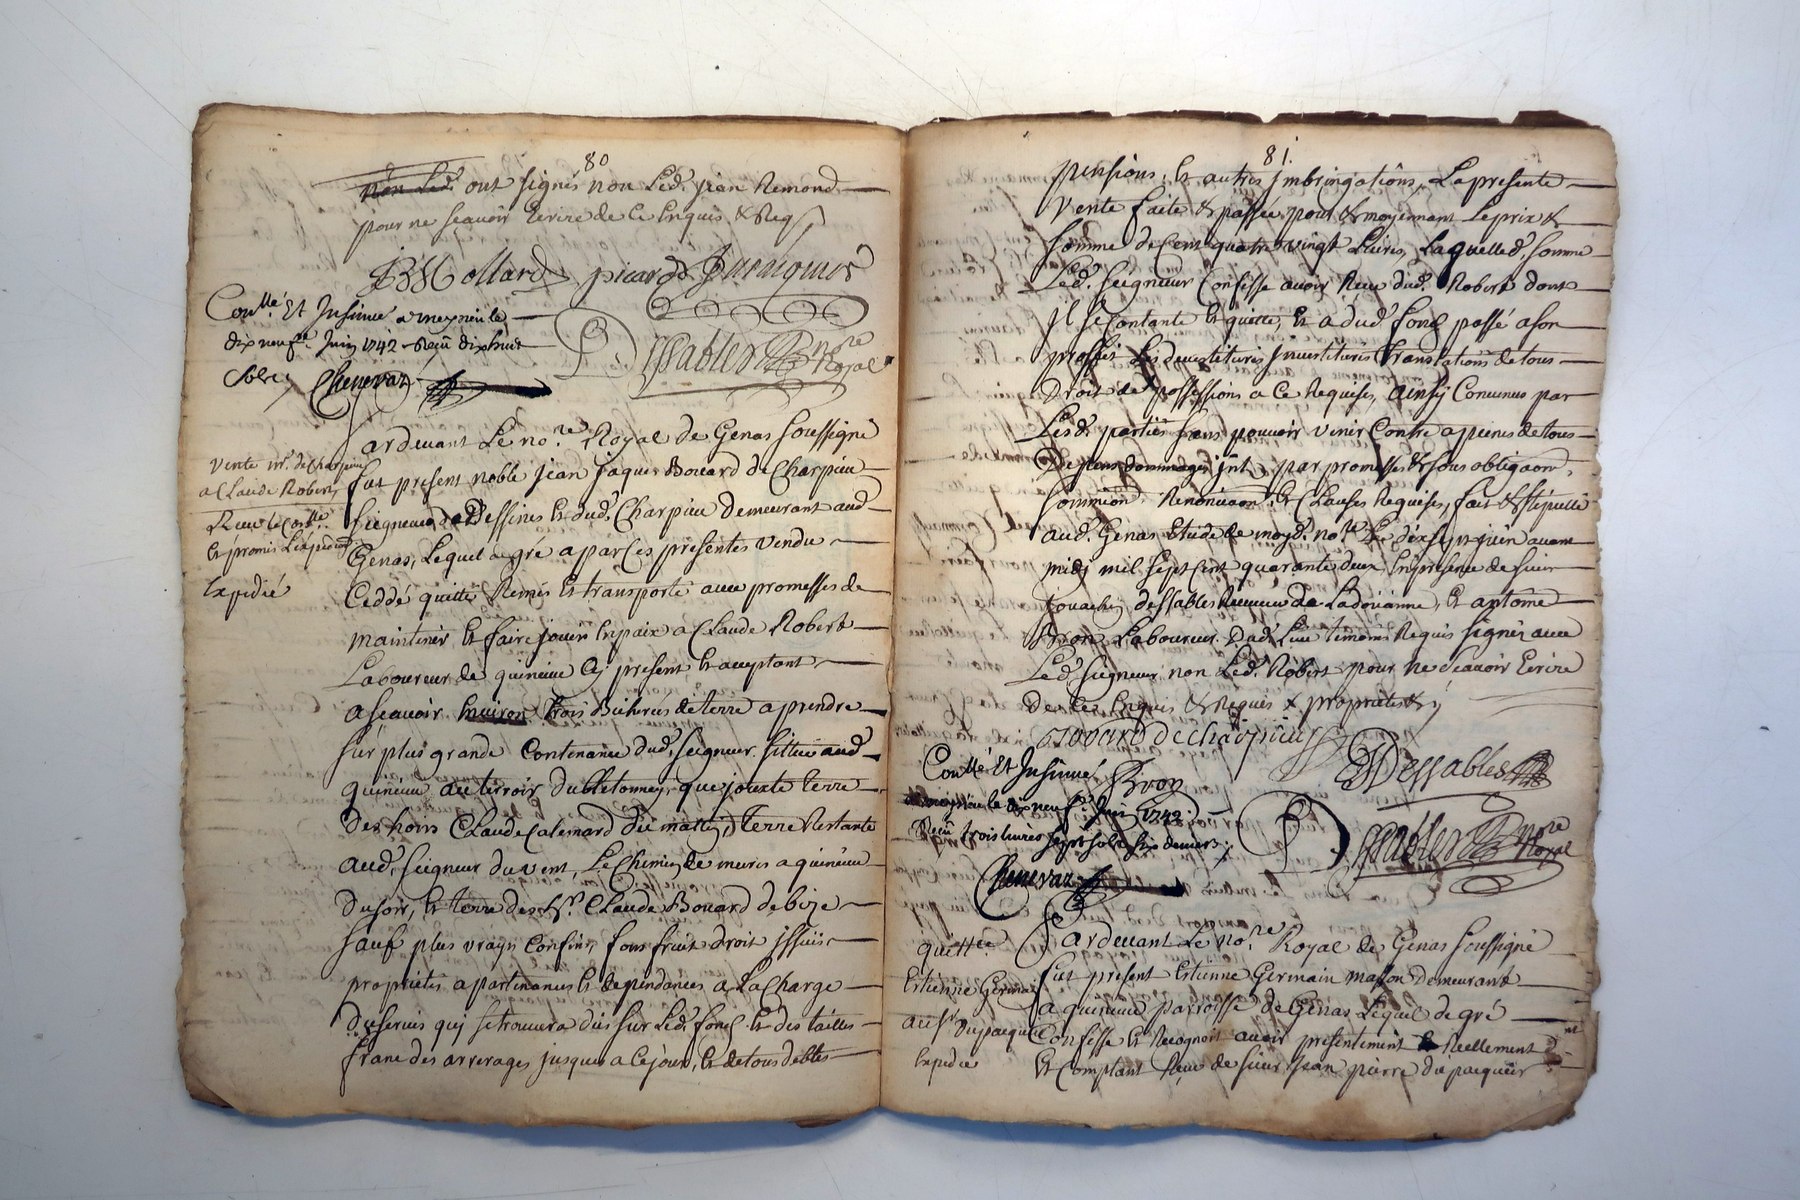 80
non Led. ont signés non Led. jean Remond
pour ne sçauoir Ecrire de Ce Enquis & Req
JB Mollard picard
Conllé. Et Insinué a meyzieu le
dix neufe. Juin 1742 Reçu dix huit
sols Chenevaz
Dessables nore Royal
Pardeuant Le nore. Royal de Genas soussigné
fut present noble jean jaques Bouard de Charpieu
seigneur de Dessines & dud. Charpieu demeurant aud.
Genas, Lequel de gré a par Ces presentes vendu
Ceddé quitté Remis & transporté auec promesses de
maintenir & faire jouir En paix a Claude Robert
Laboureur de quincieu Cy present & acceptant
vente mr. de Charpieu
a Claude Robert
Expedié
a sçauoir Enuiron trois Bicherées de terre a prendre
sur plus grande Contenance dud. seigneur sittuée aud.
quincieu au terroir du que jouxte terre
des hoirs Claude Calemard du matin, terre Restante
aud. seigneur du vent, Le Chemin de a quincieu
du soir, & terre de Sr. Claude Bouard de bize
sauf plus vrays Confins, fons fruit droit jssües
proprietés apartenances & dependances a La Charge
des seruis quj se trouuera dus sur Led. fond & des tailles
franc des arrerages jusques a Ce jour, & de tous debtes
81.
pensions, & autres jmbringations, La presente
vente faite & passée pour & moyennant Le prix &
somme de Cent quatre vingt Liures, Laquelle d. somme
Led. seigneur Confesse auoir Reçue dud. Robert dont
Jl se Contante & quitte, & a dud. fond passé a son
proffit Les deuestitures jnuestitures translations de tous
droit de possessions a Ce Requises, ainsy Conuenus par
Lesd. parties sans pouuoir venir Contre a peines de tous
depens dommages jnt. par promesses & sous obligaon.
soumion. Renonciaon. & Clauses Requises, fait & stipullé
aud. Genas Etude de moyd. nore. Le dix sept juin auant
midy mil sept Cent quarante deux En presence de sieur
dessables Receueur de La doüanne, & antoine
Bron Laboureur dud. Lieu temoins Requis signés auec
Led. seigneur non Led. Robert pour ne sçauoir Ecrire
de Ce Enquis & Requis
Bouard de charpieu
Dessables
Bron
Conllé Et Insinué
a meyzieu le dix neufe. Juin 1742
Reçu trois liures sept sols six deniers
Chenevaz
Dessables nore Royal
Pardeuant Le nore. Royal de Genas soussigné
quittce.
fut present Etienne Germain masson demeurant
Etienne Germain
a quincieu parroisse de Genas Lequel de gré
au sr. Dupacquier
Confesse & Recognoit auoir presentement & Réellement
Expedié
Et Comptant Reçu de sieur jean pierre dupacquier